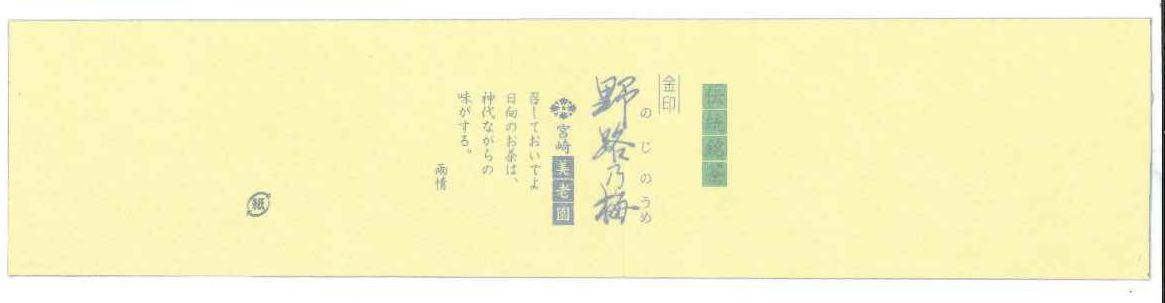 伝統銘茶
金印
のじのうめ
野路乃梅
宮崎美老園
召しておいでよ
日向のお茶は、
神代ながらの
味がする。
雨情
紙